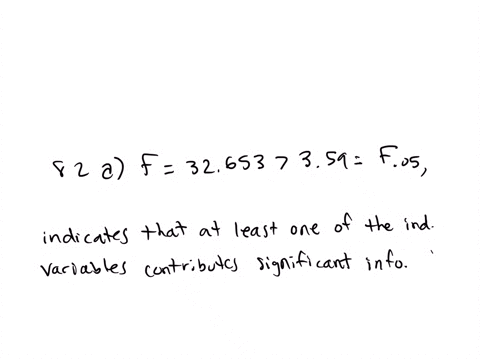 82 a) F = 32.653 > 3.59 = F.05,
indicates that at least one of the ind.
variables contributes significant info.